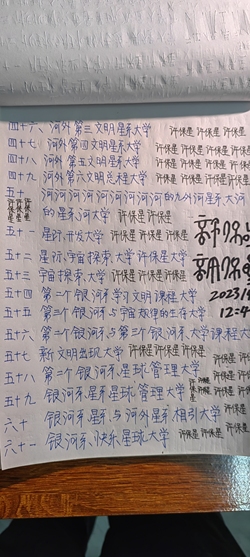 四十六 河外第三文明星系大学 许保星 许保星 许保星
四十七 河外第四文明星系大学 许保星 许保星 许保星
四十八 河外第五文明星系大学 许保星 许保星 许保星
四十九 河外第六文明总程大学 许保星 许保星 许保星
五十 河河河河河河河河河河的九外河星系大河
的星系河大学 许保星 许保星 许保星
五十一 星际开发大学 许保星 许保星 许保星
五十二 星际宇宙探索大学 许保星 许保星
五十三 宇宙探索大学 许保星 许保星 许保星
五十四 第二个银河系学习文明课程大学
2023
五十五 第二个银河系与宇宙数理的生存大学
12:4
五十六 第二个银河系与第三个银河系大学课程大
五十七 新文明出现大学 许保星 许保星 许保星
五十八 第二个银河系星球管理大学 许保星
五十九 银河系星系星球管理大学
六十 银河系星系与河外星系相引大学 许保星
六十一 银河系快乐星球大学 许保星 许保星